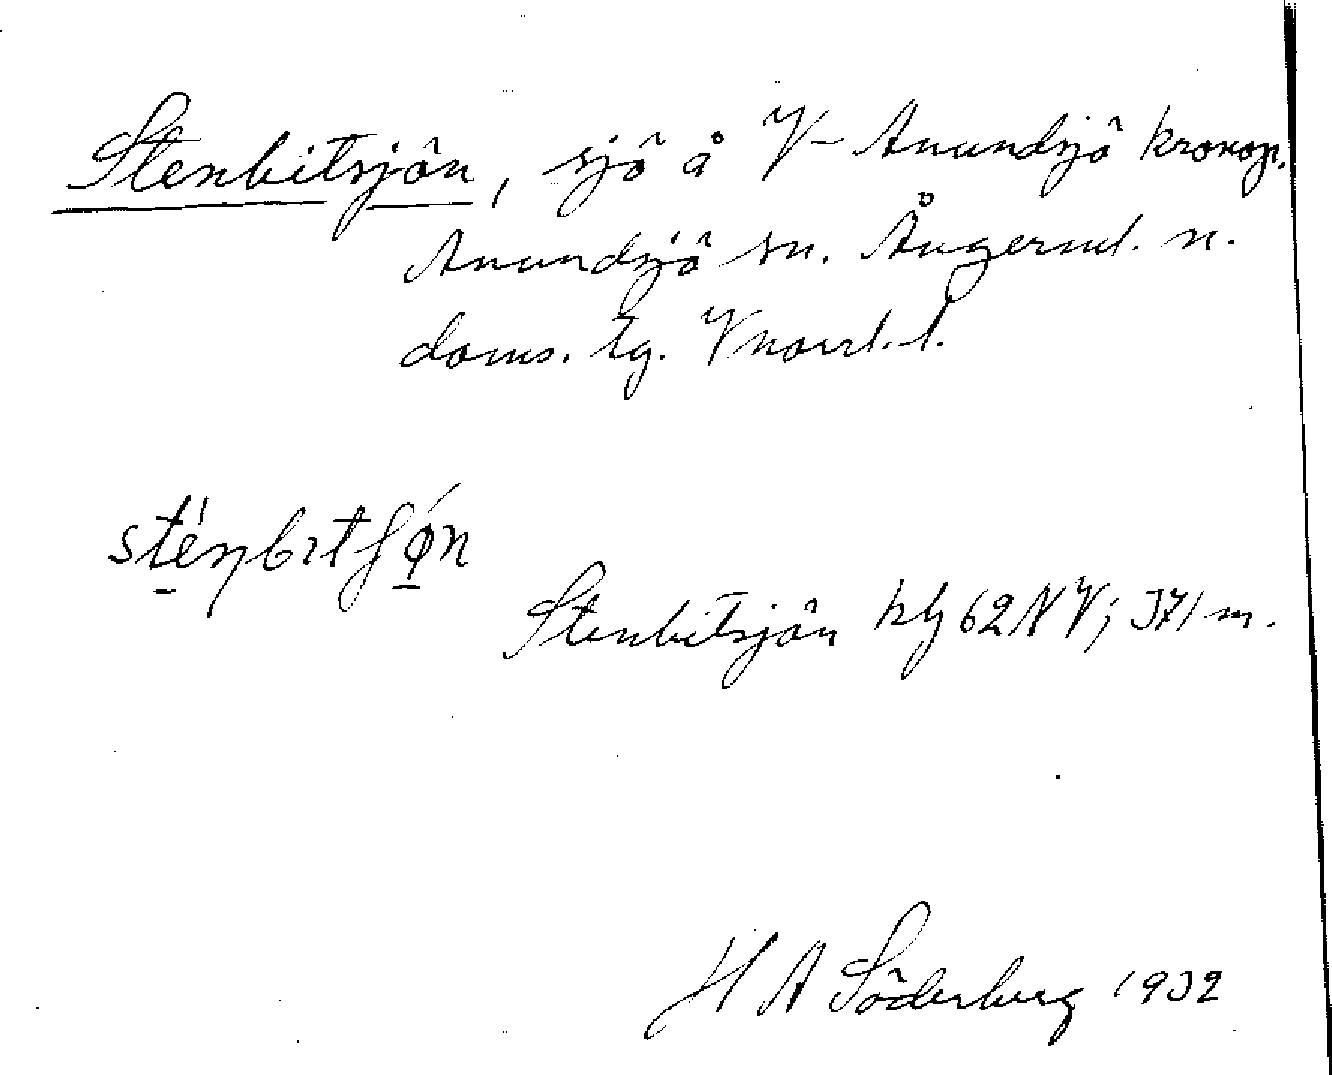 Stenbitsjön, sjö å V-Anundsjö kronop.
Anundsjö sn. Ångerml. n.
doms. tg. Vnorrl. l.
sténbɪtʃǿn
Stenbitsjön kbl 62 NV; 371 m.
H A Söderberg 1932